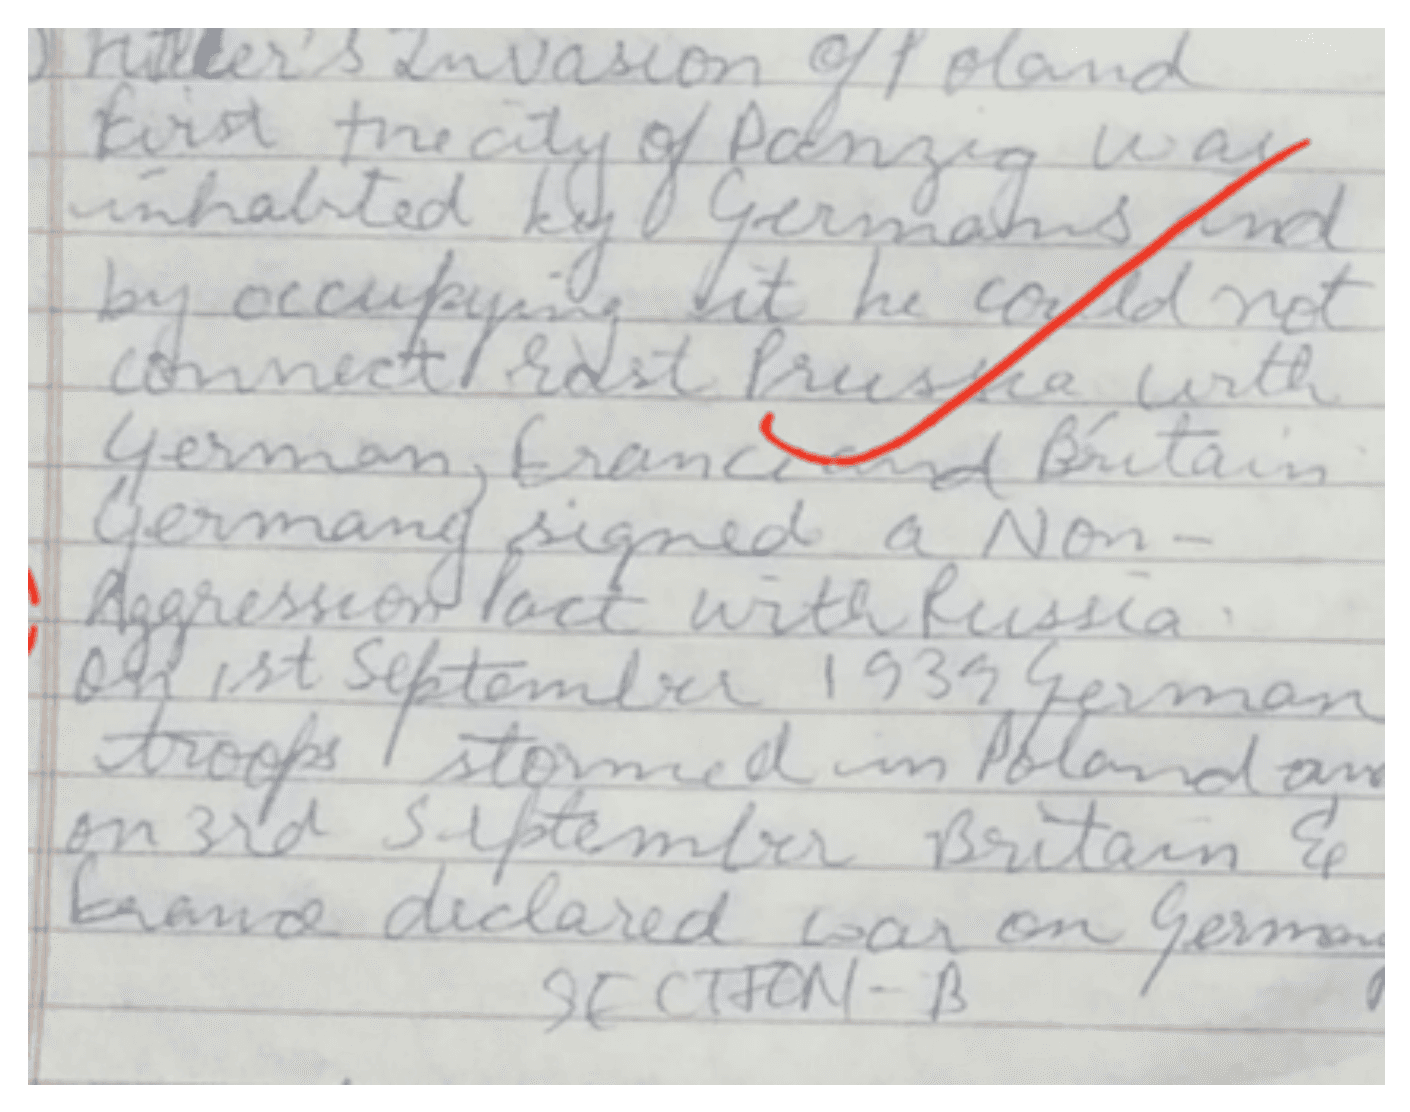 ) Hitler's Invasion of Poland
First the city of Danzig was
inhabited by Germans and
by occupying it he could not
connect East Prussia with
German, France and Britain
Germany signed a Non-
Aggression Pact with Russia.
On 1st September 1939 German
troops stormed in Poland and
on 3rd September Britain &
France declared war on Germany
SECTION-B